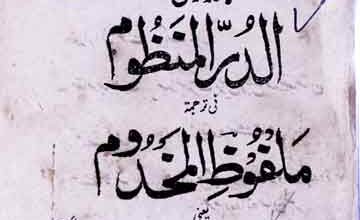 الدُرُّ المَنظُوم
فی ترجمة
مَلفُوظُ المَخدُوم
یعنی